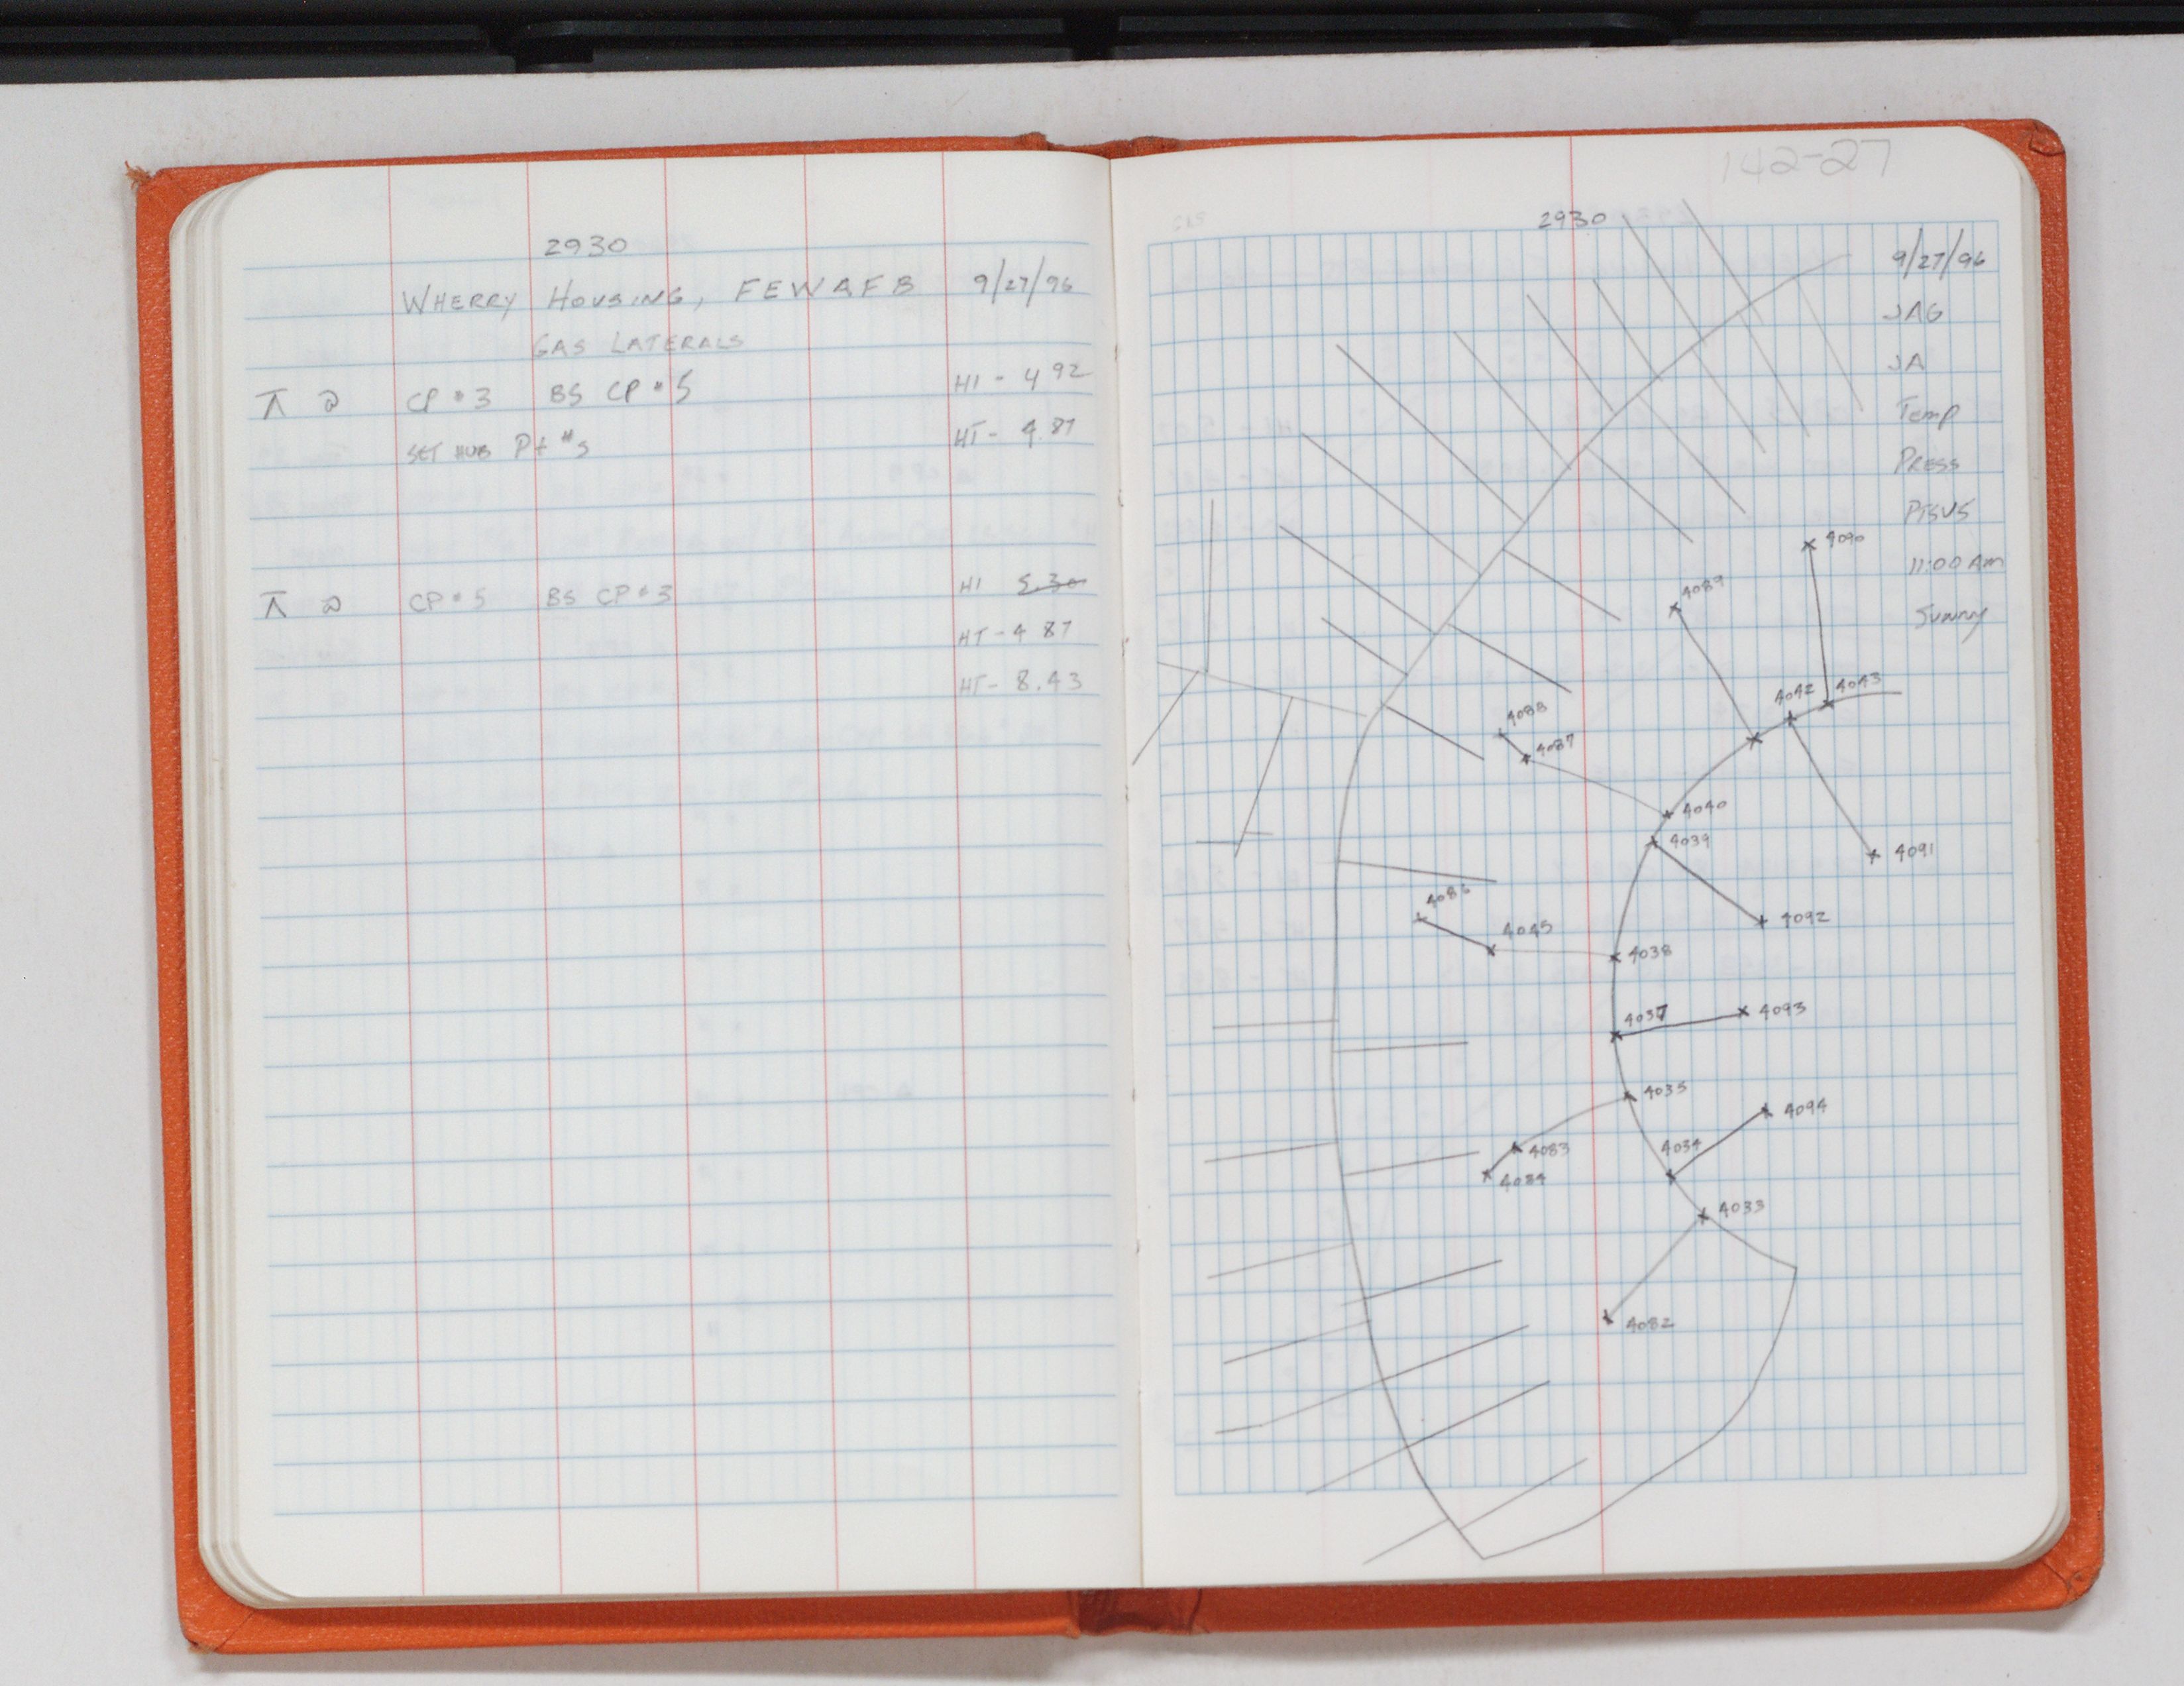 2930
WHERRY HOUSING, FEWAFB 9/27/96
GAS LATERALS
CP #3 BS CP #5 HI - 4 92
SET HUB Pt #s HT - 4.87
CP #5 BS CP #3 HI 5.30
HT - 4 87
HT - 8.43
142-27
2930
9/27/96
JAG
JA
Temp
PRESS
PTSVS
11:00 AM
Sunny
4090
4089
4042 4043
4088
4087
4040
4039
4091
4086
4092
4045
4038
4037 4093
4035
4094
4034
4083
4084
4033
4082